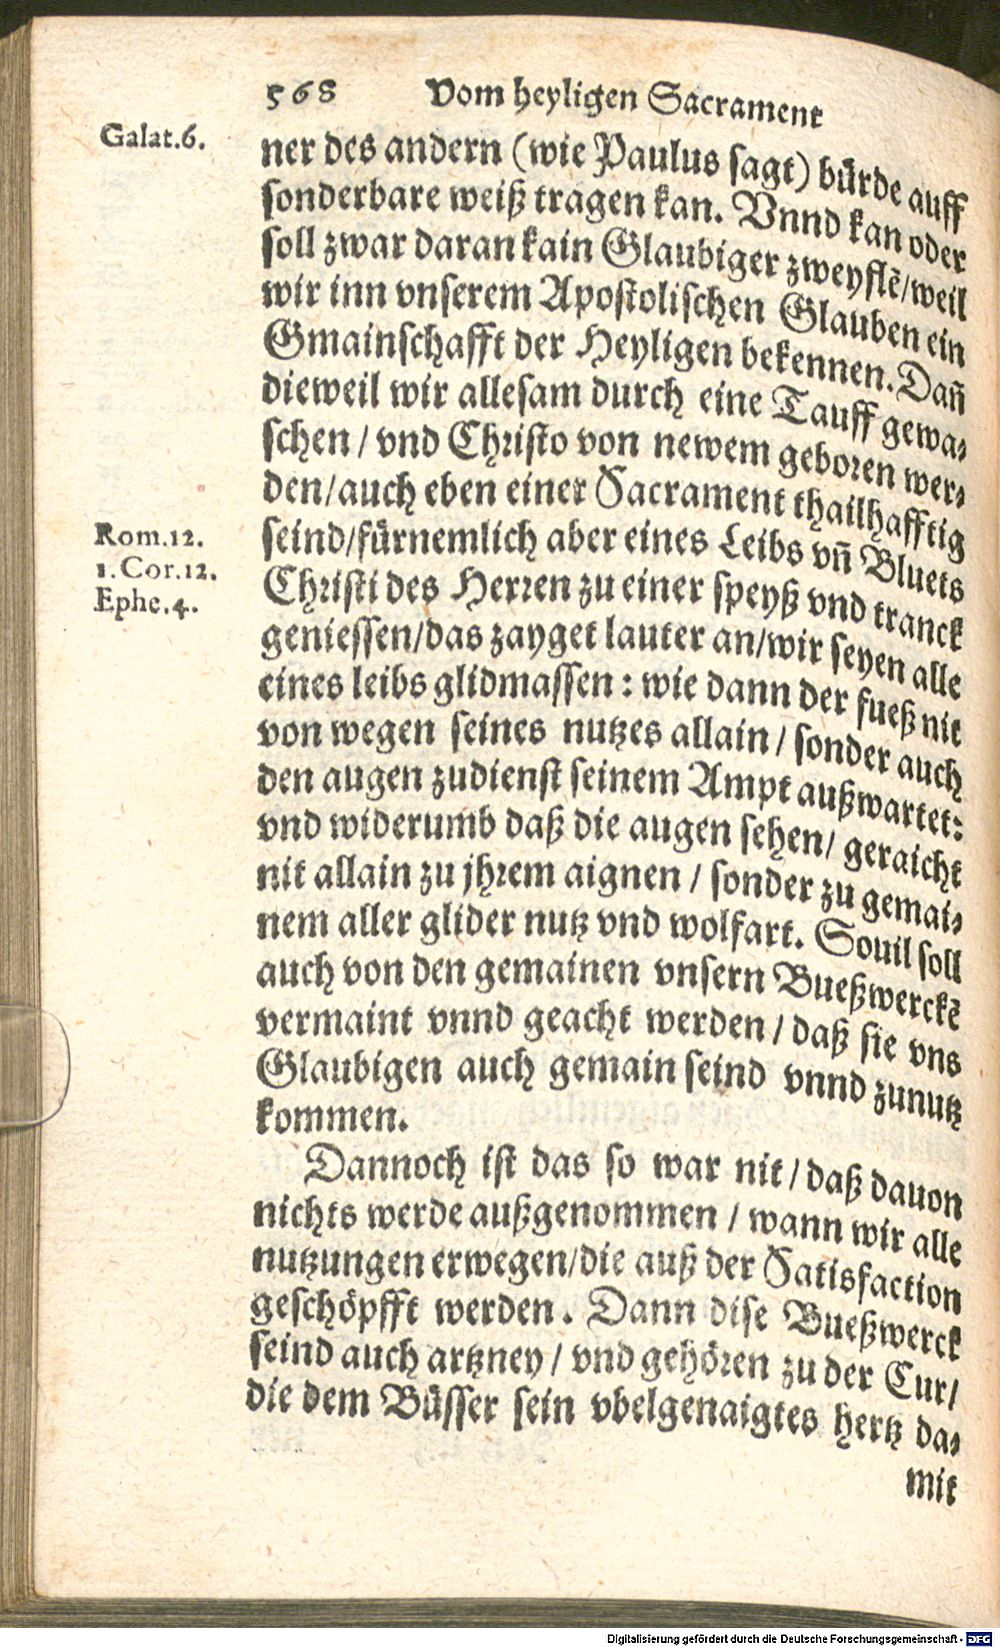 568 Vom heyligen Sacrament
Galat.6.
ner des andern (wie Paulus sagt) bürde auff
sonderbare weiß tragen kan. Vnnd kan oder
soll zwar daran kain Glaubiger zweyflẽ/weil
wir inn vnserem Apostolischen Glauben ein
Gmainschafft der Heyligen bekennen. Dañ
dieweil wir allesam durch eine Tauff gewa-
schen / vnd Christo von newem geboren wer-
den/auch eben einer Sacrament thailhafftig
Rom.12.
1.Cor.12.
Ephe.4.
seind/fürnemlich aber eines Leibs vñ Bluets
Christi des Herren zu einer speyß vnd tranck
geniessen/das zayget lauter an/wir seyen alle
eines leibs glidmassen : wie dann der fueß nit
von wegen seines nutzes allain / sonder auch
den augen zudienst seinem Ampt außwartet:
vnd widerumb daß die augen sehen/ geraicht
nit allain zu jhrem aignen / sonder zu gemai-
nem aller glider nutz vnd wolfart. Souil soll
auch von den gemainen vnsern Bueßwerckẽ
vermaint vnnd geacht werden / daß sie vns
Glaubigen auch gemain seind vnnd zunutz
kommen.
Dannoch ist das so war nit / daß dauon
nichts werde außgenommen / wann wir alle
nutzungen erwegen/die auß der Satisfaction
geschöpfft werden. Dann dise Bueßwerck
seind auch artzney / vnd gehören zu der Cur/
die dem Büsser sein vbelgenaigtes hertz da-
mit
Digitalisierung gefördert durch die Deutsche Forschungsgemeinschaft - DFG